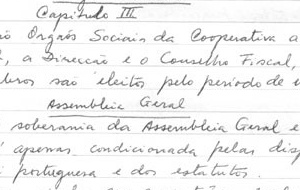 Capítulo III
ão Orgãos Sociais da Cooperativa a
, a Direcção e o Conselho Fiscal,
bros são eleitos pelo período de
Assembleia Geral
soberania da Assembleia Geral e
apenas condicionada pelas disp
portuguesa e dos estatutos.